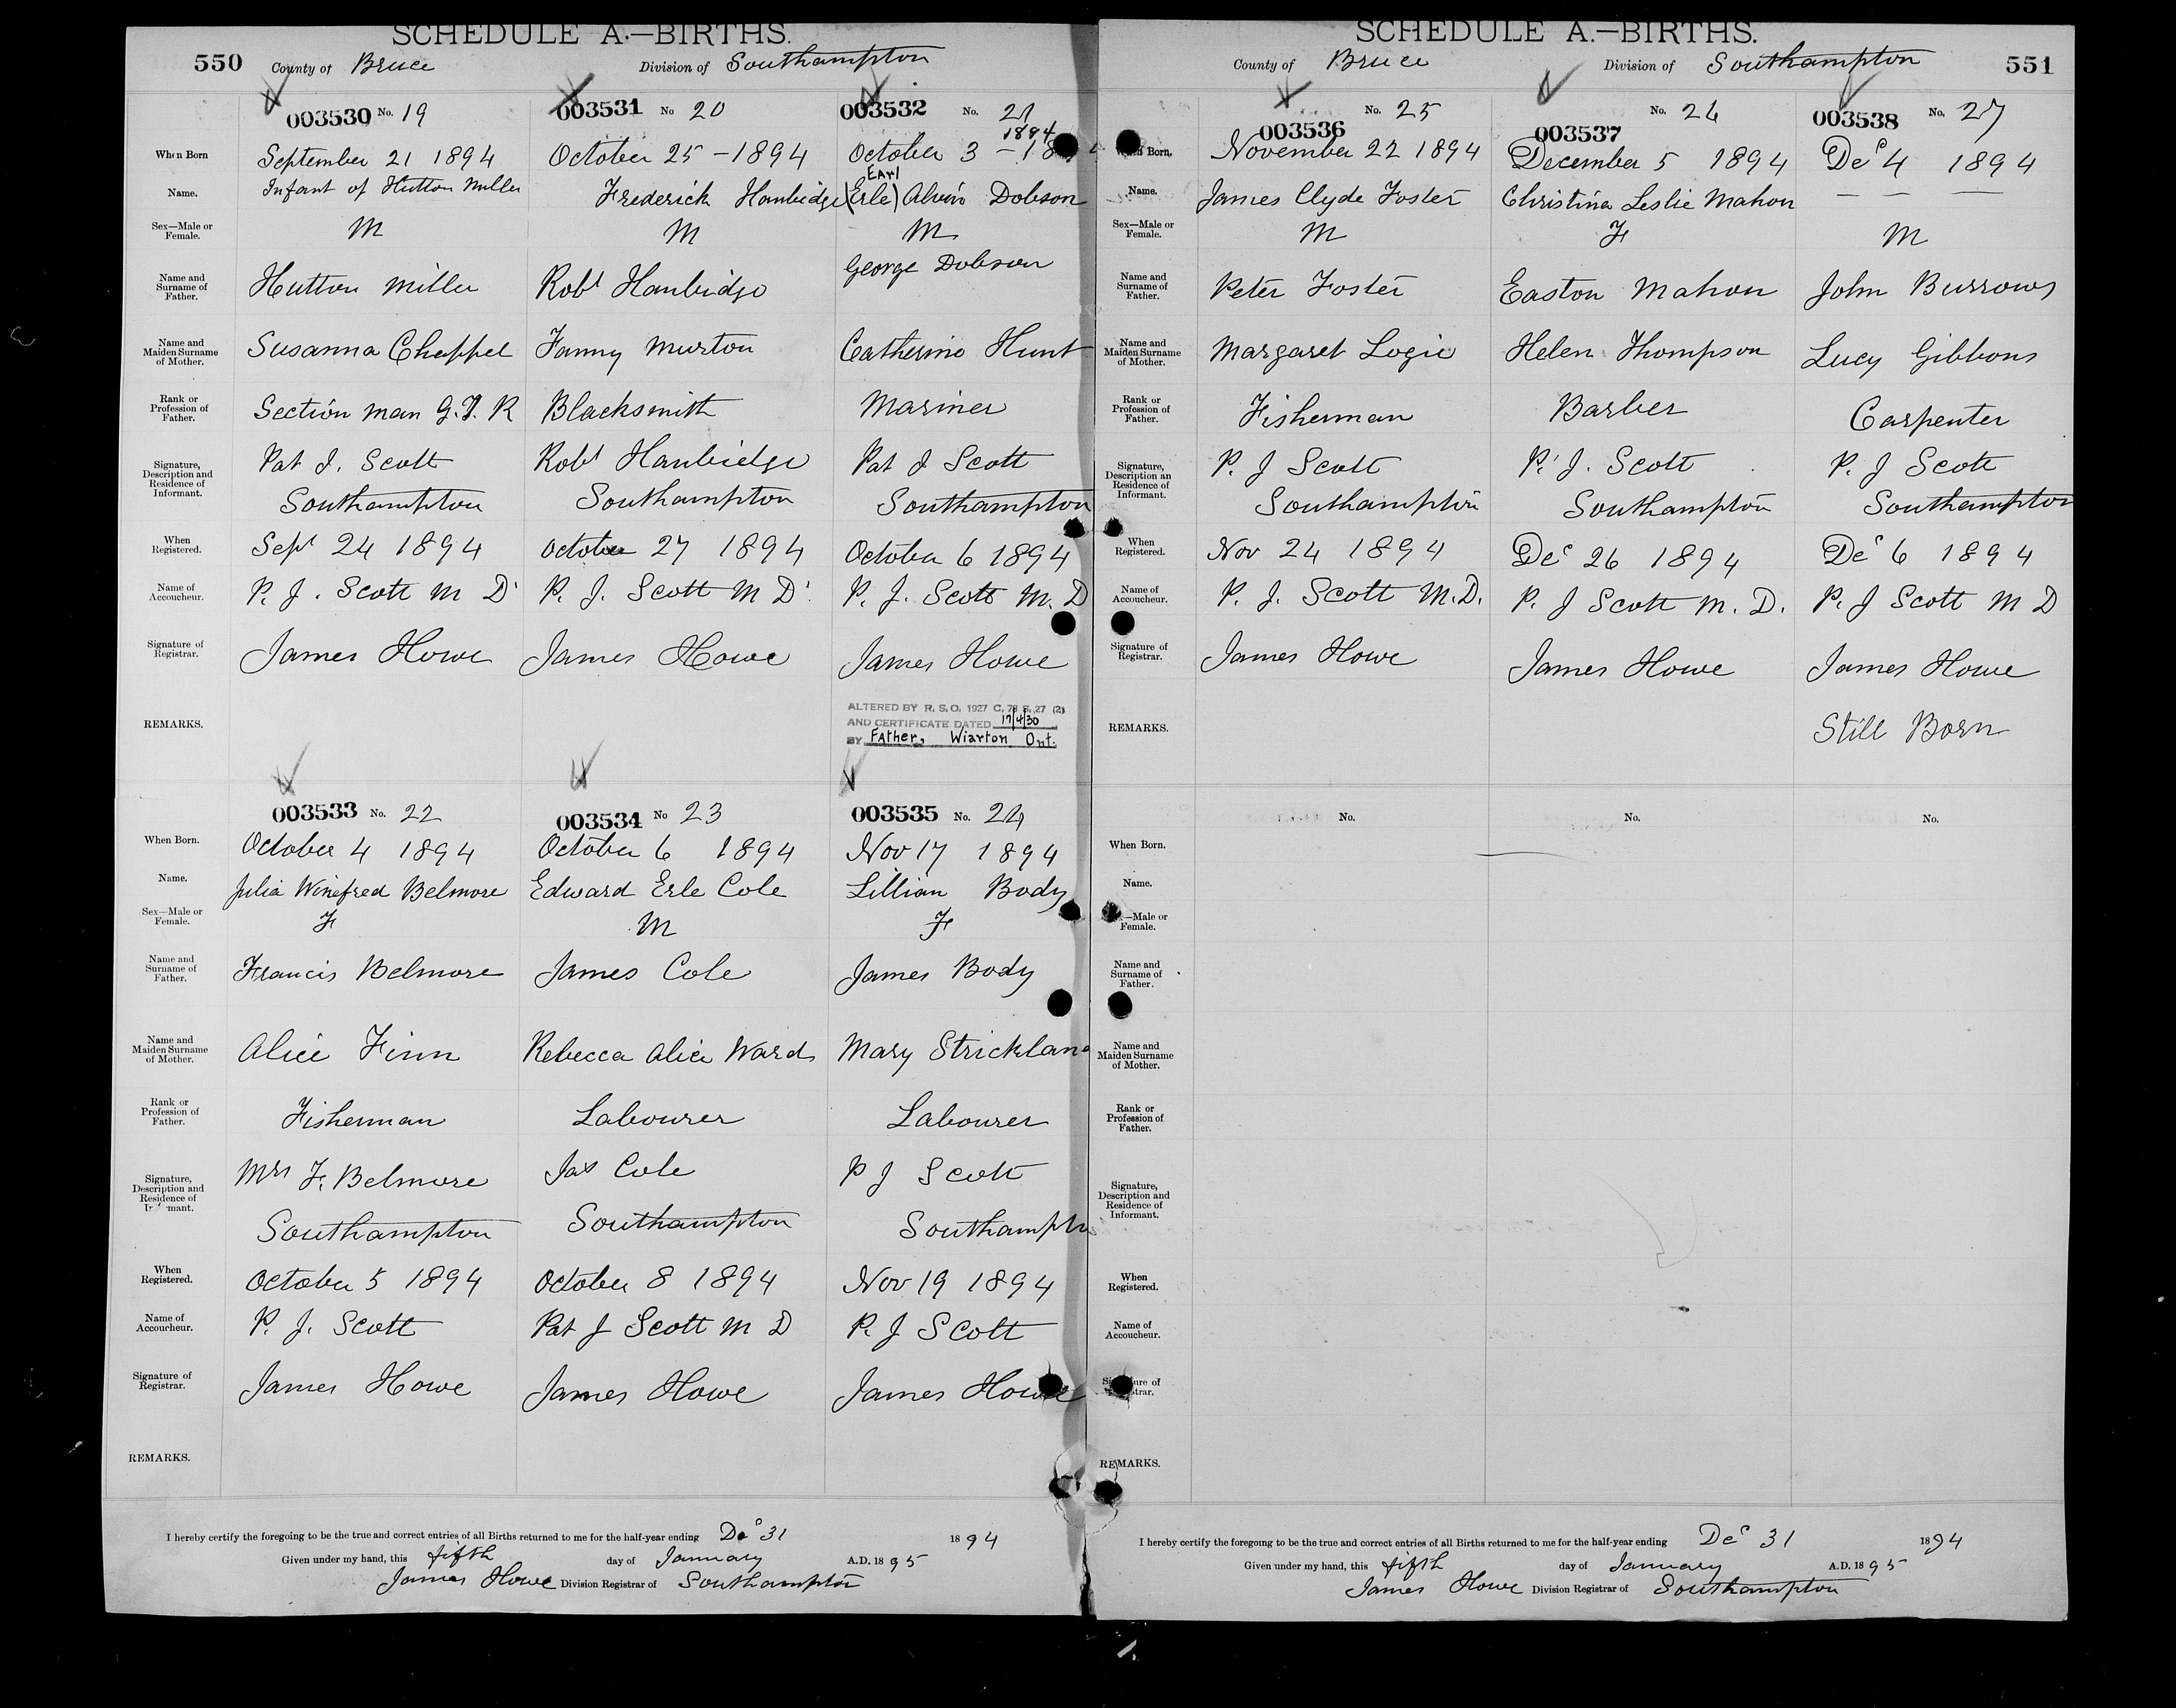 SCHEDULE A.—BIRTHS.
550 County of Bruce Division of Southampton
003530 No. 19
When Born September 21 1894
Name. Infant of Hutton Miller
Sex—Male or Female. M
Name and Surname of Father. Hutton Miller
Name and Maiden Surname of Mother. Susanna Chappel
Rank or Profession of Father. Section man G.T.R
Signature, Description and Residence of Informant. Pat J. Scott
Southampton
When Registered. Sept 24 1894
Name of Accoucheur. P. J. Scott M D
Signature of Registrar. James Howe
REMARKS.
003531 No 20
October 25 - 1894
Frederick Hanbidge
M
Robt Hanbidge
Fanny Murton
Blacksmith
Robt Hanbidge
Southampton
October 27 1894
P. J. Scott M D
James Howe
003532 No. 21
1894
October 3 –
Earl
(Erle) Alvin Dobson
M
George Dobson
Catherine Hunt
Mariner
Pat J Scott
Southampton
October 6 1894
P. J. Scott M. D
James Howe
ALTERED BY R. S. O. 1927 C. 78 S. 27 (2)
AND CERTIFICATE DATED 17/4/30
BY Father, Wiarton Ont.
003533 No. 22
When Born. October 4 1894
Name. Julia Winefred Belmore
Sex—Male or Female. F
Name and Surname of Father. Francis Belmore
Name and Maiden Surname of Mother. Alice Finn
Rank or Profession of Father. Fisherman
Signature, Description and Residence of Informant. Mrs F. Belmore
Southampton
When Registered. October 5 1894
Name of Accoucheur. P. J. Scott
Signature of Registrar. James Howe
REMARKS.
003534 No 23
October 6 1894
Edward Erle Cole
M
James Cole
Rebecca Alice Wards
Labourer
Jas Cole
Southampton
October 8 1894
Pat J Scott M D
James Howe
003535 No. 24
Nov 17 1894
Lillian Body
F
James Body
Mary Strickland
Labourer
P J Scott
Southampton
Nov 19 1894
P. J Scott
James Howe
I hereby certify the foregoing to be the true and correct entries of all Births returned to me for the half-year ending Dec 31 1894
Given under my hand, this fifth day of January A.D. 1895
James Howe Division Registrar of Southampton
SCHEDULE A.—BIRTHS.
County of Bruce Division of Southampton 551
003536 No. 25
Born. November 22 1894
Name. James Clyde Foster
Sex—Male or Female. M
Name and Surname of Father. Peter Foster
Name and Maiden Surname of Mother. Margaret Logie
Rank or Profession of Father. Fisherman
Signature, Description an Residence of Informant. P. J Scott
Southampton
When Registered. Nov 24 1894
Name of Accoucheur. P. J. Scott M.D.
Signature of Registrar. James Howe
REMARKS.
003537 No. 26
December 5 1894
Christina Leslie Mahon
F
Easton Mahon
Helen Thompson
Barber
P. J. Scott
Southampton
Dec 26 1894
P. J Scott M. D.
James Howe
003538 No. 27
Dec 4 1894
— — —
M
John Burrows
Lucy Gibbons
Carpenter
P. J Scott
Southampton
Dec 6 1894
P. J Scott M D
James Howe
Still Born
No. No. No.
When Born.
Name.
—Male or Female.
Name and Surname of Father.
Name and Maiden Surname of Mother.
Rank or Profession of Father.
Signature, Description and Residence of Informant.
When Registered.
Name of Accoucheur.
Signature of Registrar.
REMARKS.
I hereby certify the foregoing to be the true and correct entries of all Births returned to me for the half-year ending Dec 31 1894
Given under my hand, this fifth day of January A.D. 1895
James Howe Division Registrar of Southampton